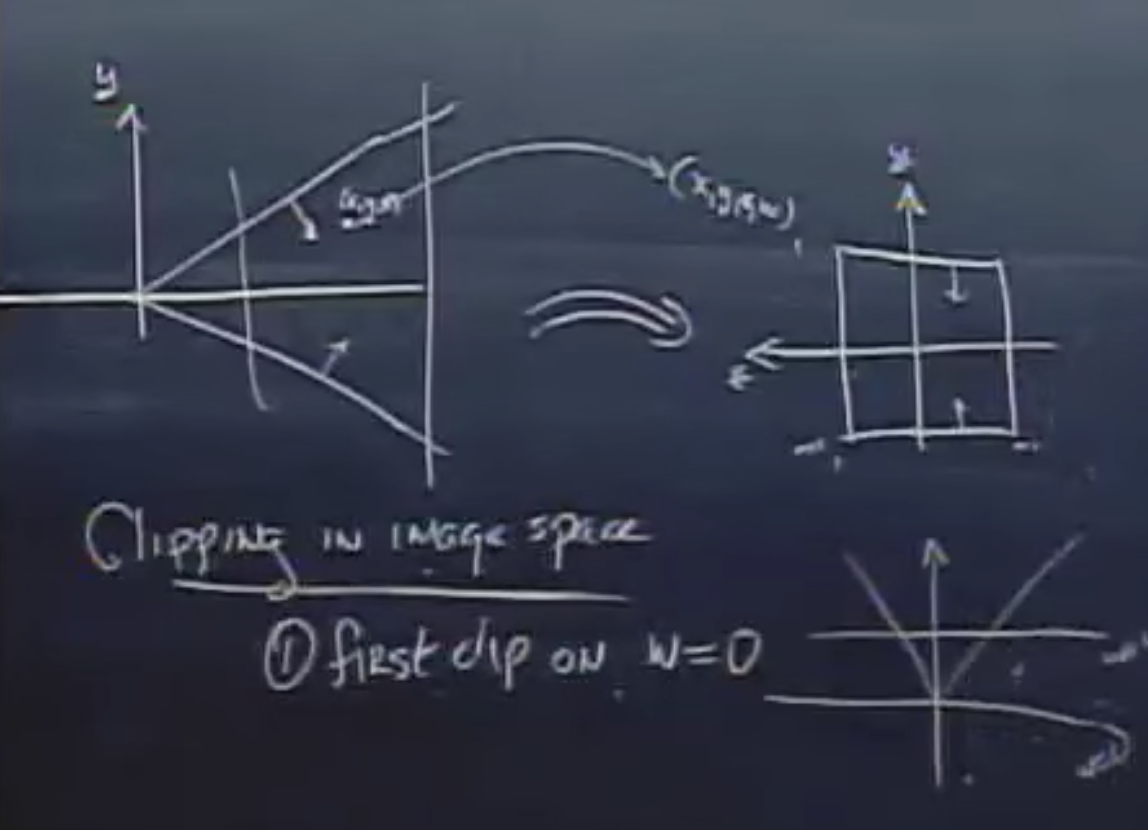 y
(x,y,z,w)
y
z
Clipping in image space
① first clip on w=0